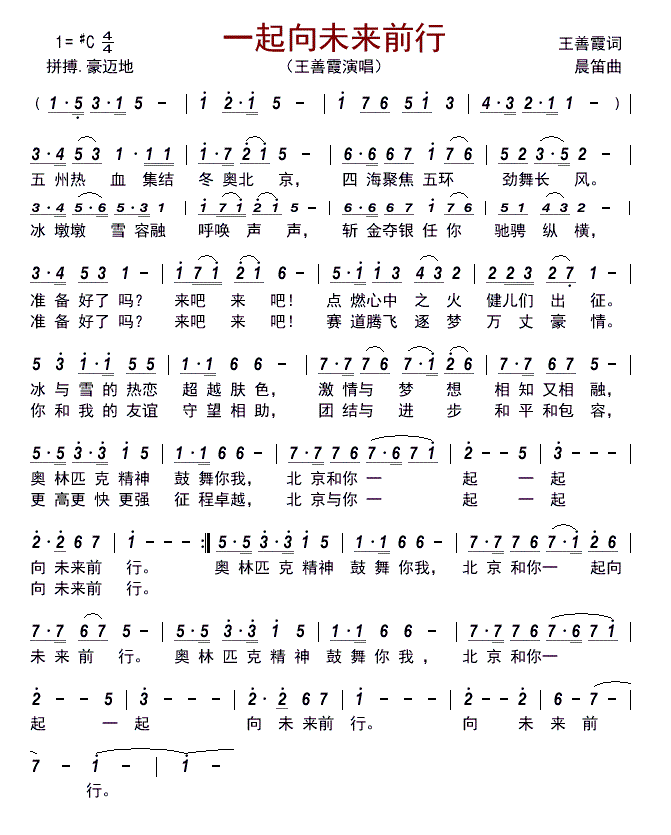 一起向未来前行
1= #C 4/4
王善霞词
拼搏.豪迈地
（王善霞演唱）
晨笛曲
( 1·5 3·1 5 - | 1 2·1 5 - | 1 76 51 3 | 4·3 2·1 - ) |
3·4 53 1 ·11 | 1·7 21 5 - | 6·6 67 1 76 | 52 3·5 - |
五 州热 血 集结 冬 奥北 京， 四 海聚焦 五环 劲舞长 风。
3·4 5·6 5·31 | 1·71 21 5 - | 6·6 67 1 76 | 51 43 - |
冰 墩墩 雪 容融 呼唤 声 声， 斩 金夺银 任你 驰骋 纵 横，
3·4 53 1 - | 171 21 6 - | 5·1 13 43 2 | 223 27 1 - |
准 备 好了 吗？ 来吧 来 吧！ 点 燃心中 之 火 健儿们 出 征。
准 备 好了 吗？ 来吧 来 吧！ 赛 道腾飞 逐 梦 万 丈 豪 情。
5 3 1·1 55 | 1·1 66 - | 7·7 76 7·1 26 | 7·7 67 5 - |
冰 与 雪 的 热恋 超 越 肤 色， 激 情与 梦 想 相 知 又相 融，
你 和 我 的 友谊 守 望 相 助， 团 结与 进 步 和 平 和包 容，
5·5 3·3 1 5 | 1·1 66 - | 7·7 76 7·6 71 | 2 - - 5 | 3 - - - |
奥 林匹 克 精神 鼓 舞你我， 北 京和你 一 起 一 起
更 高更 快 更强 征 程卓越， 北 京与你 一 起 一 起
2·2 67 | 1 - - - :‖ 5·5 3·3 15 | 1·1 66 - | 7·7 76 7·1 26 |
向 未来前 行。 奥 林匹 克 精神 鼓 舞 你我， 北 京 和你一 起向
向 未来前 行。
7·7 67 5 - | 5·5 3·3 1 5 | 1·1 66 - | 7·7 76 7·6 71 |
未 来 前 行。 奥 林 匹 克 精 神 鼓 舞 你 我， 北 京 和你一
2 - - 5 | 3 - - - | 2·2 67 | 1 - - - | 2 - 2 - | 6 - 7 - |
起 一 起 向 未 来前 行。 向 未 来 前
7 - 1 - | 1 - - |
行。